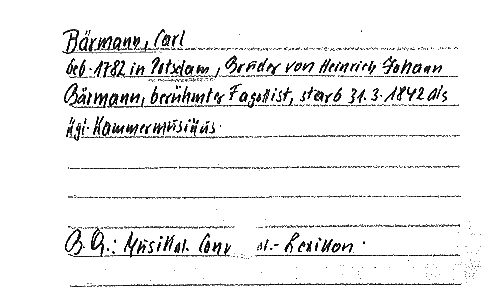 Bärmann, Carl
geb. 1782 in Potsdam, Bruder von Heinrich Johann
Bärmann, berühmter Fagottist, starb 31.3.1842 als
kgl. Kammermusikus.
B.G.: Musikal. Conv  . - Lexikon.